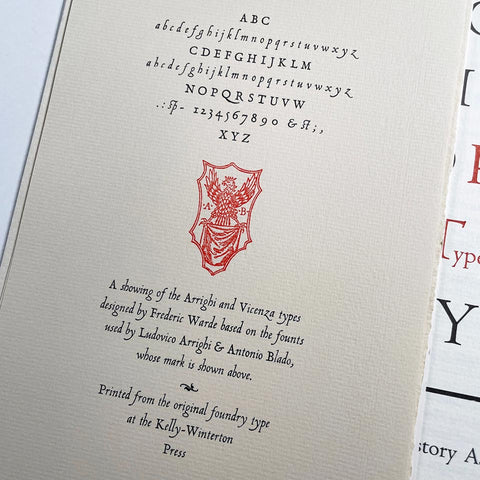 ABC
abcdefghijklmnopqrstuvwxyz
CDEFGHIJKLM
abcdefghijklmnopqrstuvwxyz
NOPQRSTUVW
.:sp- 1234567890 & st;,
XYZ
A B
A showing of the Arrighi and Vicenza types
designed by Frederic Warde based on the founts
used by Ludovico Arrighi & Antonio Blado,
whose mark is shown above.
Printed from the original foundry type
at the Kelly-Winterton
Press
Type
Y
story A